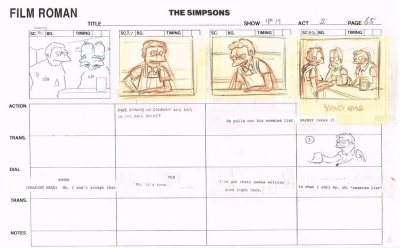 FILM ROMAN
THE SIMPSONS
TITLE
SHOW
ACT II
PAGE 65
SC. BG. TIMING
SC. BG. TIMING
SC. BG. TIMING
SC. BG. TIMING
ACTION
in his back pocket
He pulls out his enemies list.
BARNEY takes it.
TRANS.
DIAL
HOMER
MOE
(SHAKING HEAD) No, I won't accept that.
No, it's true.
I've got their names written
down right here,
in what I call my, uh, "enemies list"
TRANS.
NOTES